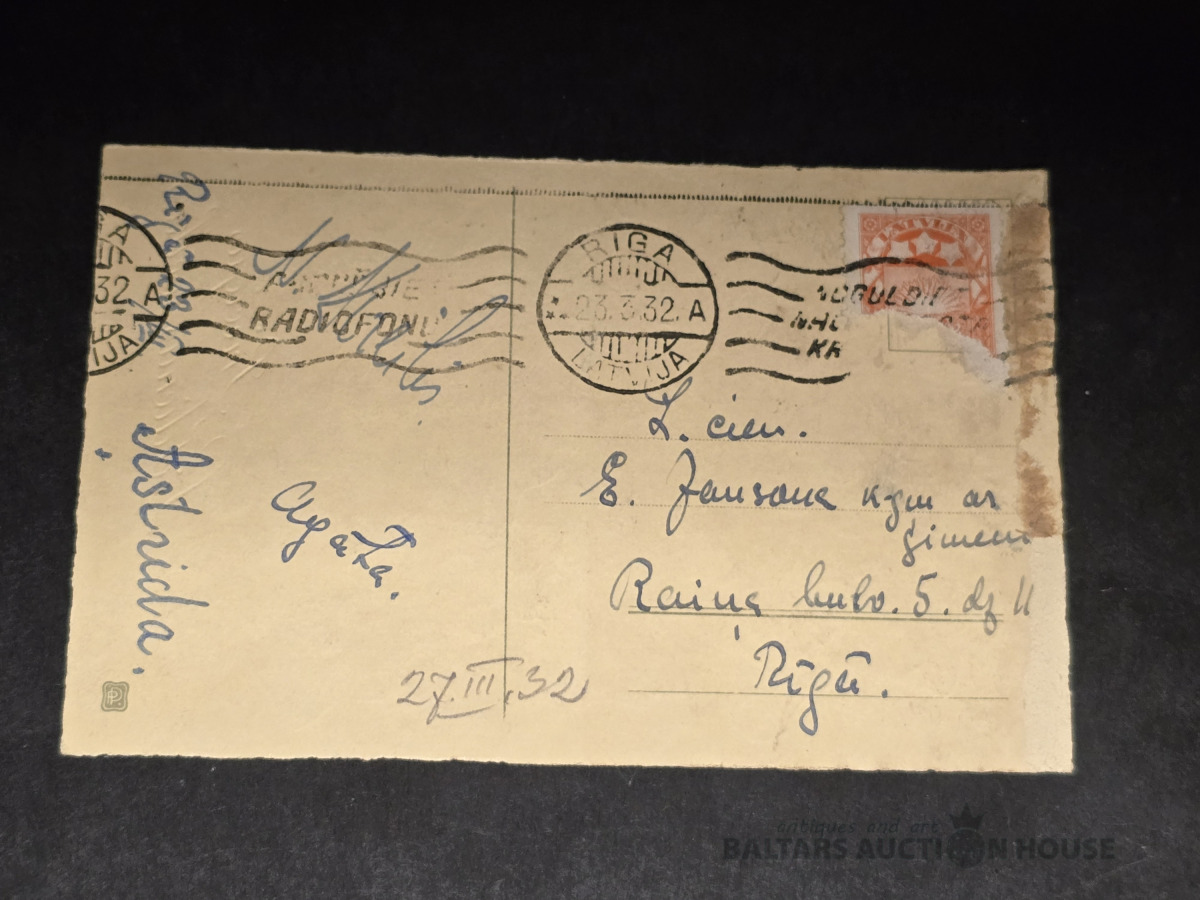 LATVIJA
RIGA
23.3.32. A
LATVIJA
RADIOFONU
NOGULDI
KR
32 A
IJA
L. cien.
E. Jansona kgm ar
ģimeni
Raiņa bulv. 5. dz 11
Rīgā.
Agata.
Astrida.
27.III.32
antiques and art
BALTARS AUCTION HOUSE